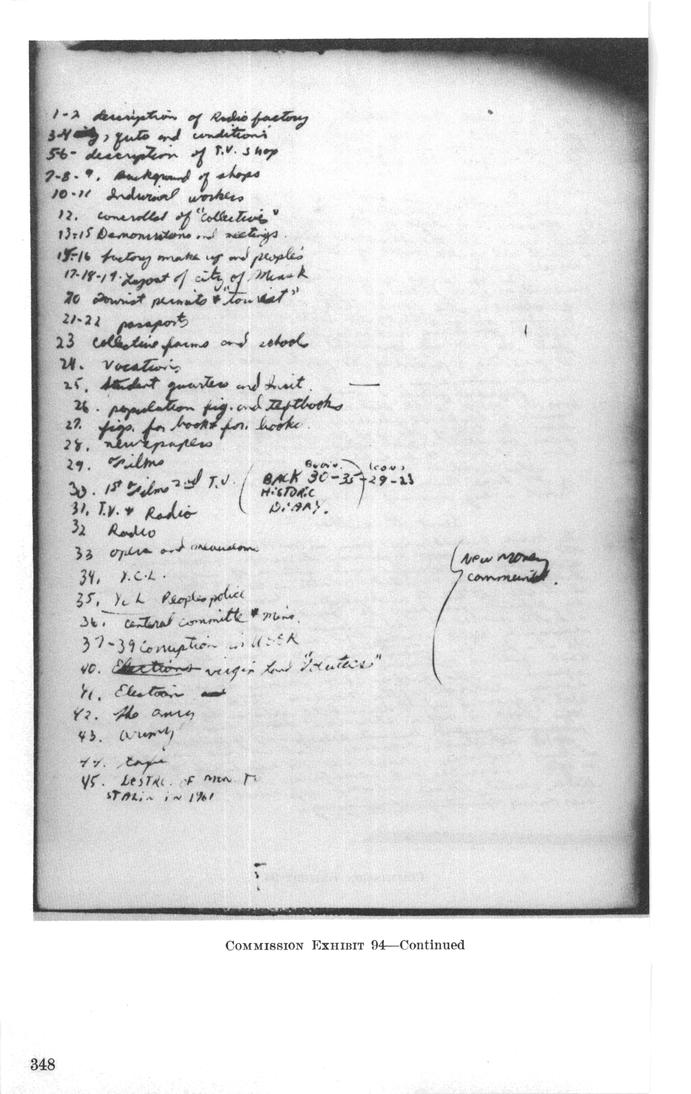 1-2 description of Radio factory
3-4 , guts and conditions
5-6- description of T.V. shop
7-8-9. Background of shops
10-11 Indivival workers
12. controlled of "Collectivis"
13-15 Demonstrations and meetings.
15-16 factory make up and peoples
17-18-19-Layout of city of Minsk
20 tourist permits & "tourist"
21-22 passports
23 collective farms and schools
24. Vocations
25. Student quarters and Instit.
26. population fig. and textbooks
27. figs. for books for. books.
28. newspapers
29. Films
30. 1st Films 2nd T.V. (BACK 30-35)-29-23
HISTORIC
DIARY.
31. T.V. & Radio
32 Radio
33 opera and
34. Y.C.L.
35. YCL Peoples police
36. centeral committe & Mins.
37-39 Corruption in USSR
NEW MONEY
comments.
40. Elections virgin land
41. Election
42. the army
43. army
44.
45. DESTRC. OF MON. TO
STALIN IN 1961
COMMISSION EXHIBIT 94—Continued
348